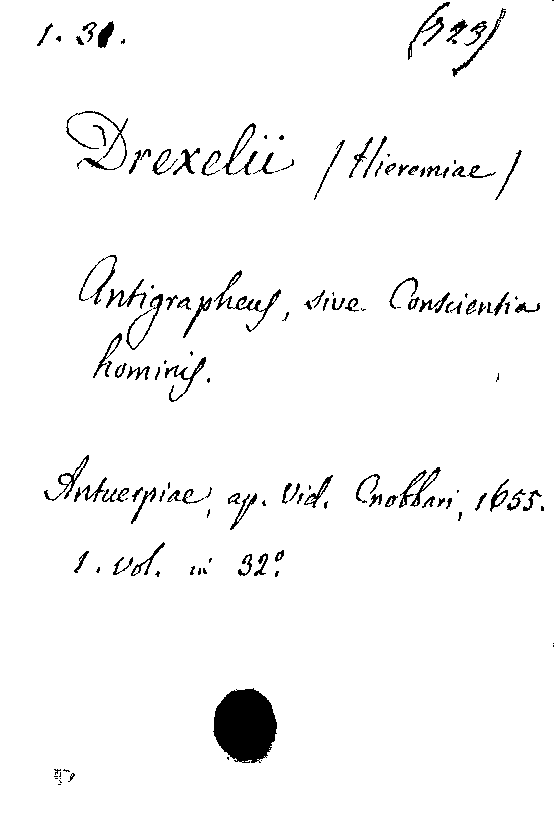 1. 31. (723)
Drexelii (Hieremiae)
Antigrapheus, sive Conscientia
hominis.
Antuerpiae, ap. Vid. Cnobbari, 1655.
1. vol. in 32º.